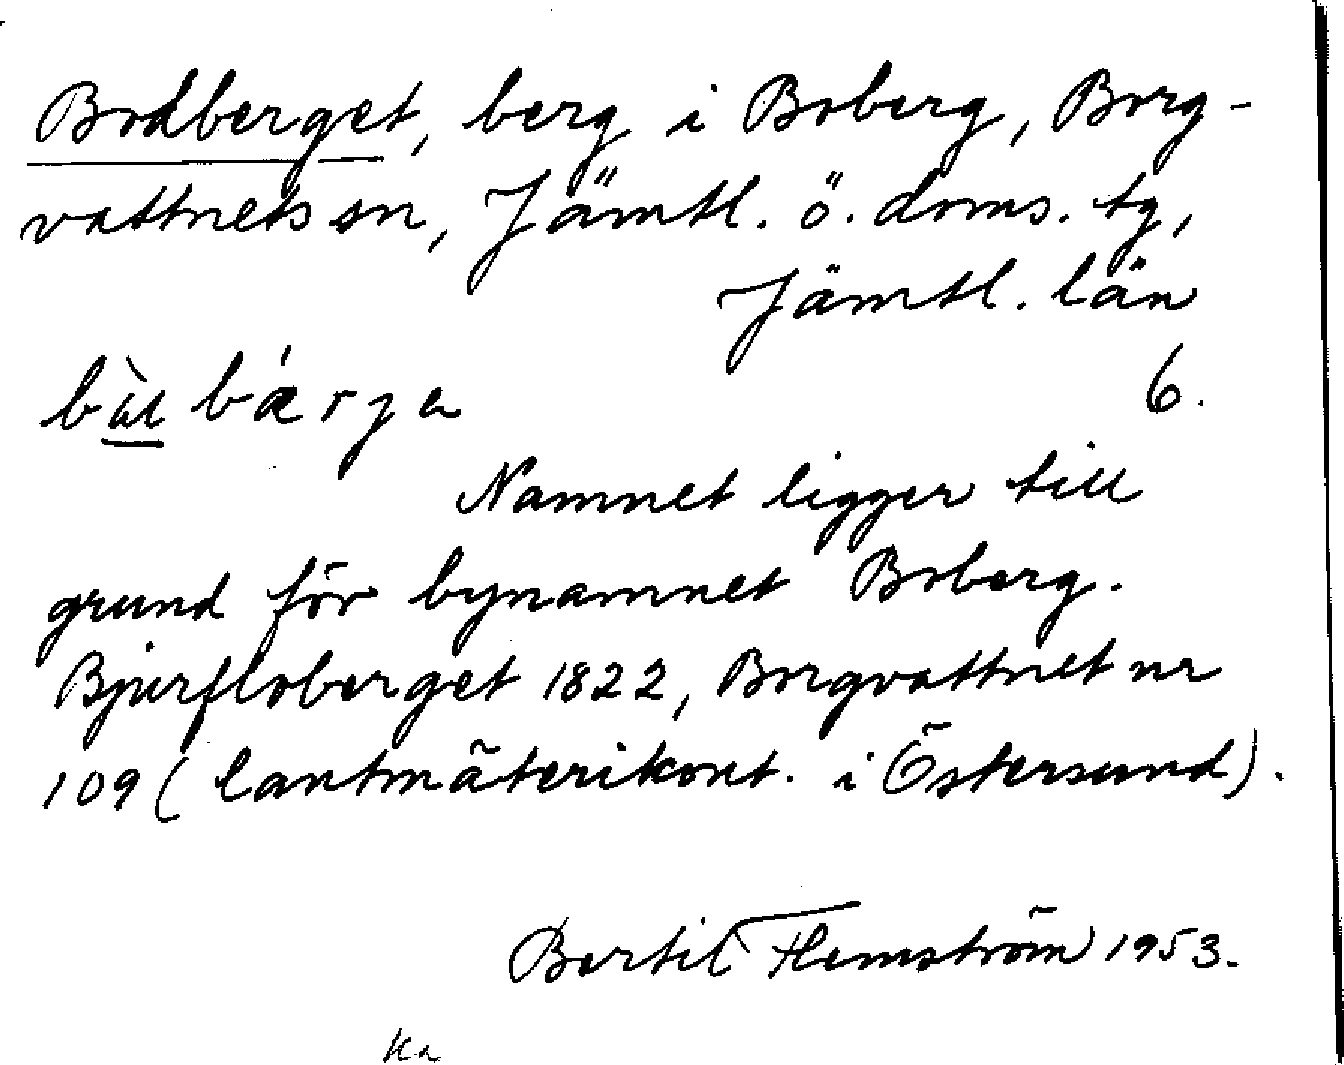 Bodberget, berg i Boberg, Borg-
vattnets sn, Jämtl. ö. doms. tg,
Jämtl. län
6.
Namnet ligger till
grund för bynamnet Boberg.
Bjurfloberget 1822, Borgvattnet nr
109 (lantmäterikont. i Östersund).
Bertil Flemström 1953.